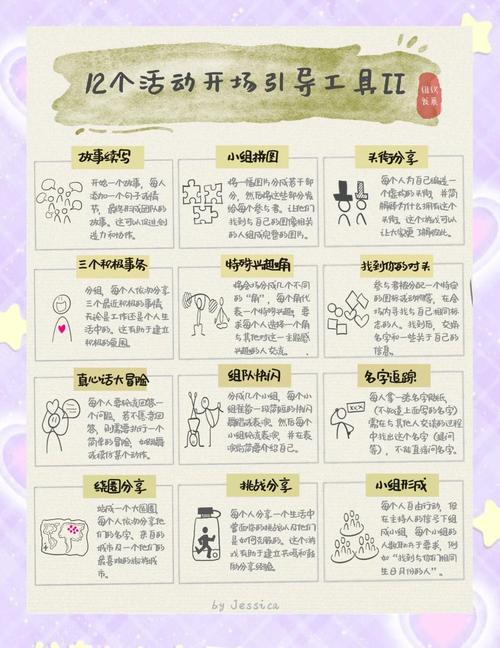 12个活动开场引导工具II
组织
发展
故事续写
开始一个故事,每人
添加一个句子或情
节,最终形成团队的
故事。这可以促进创
造力和协作。
小组拼图
将一幅图片分成若干部
分,然后将这些部分发
给每个参与者。让他们
找到与自己的图像相关
的人组成完整的图片。
头衔分享
每个人为自己编造一
个虚构的头衔,并简
解释为什么拥有这个
头衔。这个游戏可以
让大家更了解彼此。
三个积极事务
分组,每个人依次分享
三个最近积极的事情,
无论是工作还是个人生
活中的。这有助于建立
积极的氛围。
特殊兴趣角
将会场分成几个不同
的“角”,每个角代
表一个特殊兴趣。要
求每个人选择一个角
与其他对这一主题感
兴趣的人交流。
找到你的对头
参与者被分配一个特定
的图标或动物等,在会
场内寻找与自己相同标
志的人。找到后,交换
名字和一些关于自己的
信息。
真心话大冒险
每个人要轮流回答一
个问题,若不愿意回
答,则需要执行一个
简单的冒险,如跳舞
或模仿某个动作。
组队快闪
分成几个小组,每个小
组准备一段简短的快闪
舞蹈或表演,然后每个
小组轮流表演,并在表
演后简要介绍自己。
名字追踪
每人拿一张名字贴纸,
(不知道上面写的名字)
需在与其他人交谈的过程
中找出这个名字(提问
等),不能直接问名字。
XXX
绕圈分享
站成一个大圆圈
每个人依次分享他
们的名字、来自的
城市及一个他们的
最喜欢的旅游城
市。
挑战分享
每个人分享一个生活中
曾面临的挑战以及他们
是如何克服的。这个游
戏有助于建立共鸣和鼓
励分享经验。
小组形成
每个人自由行动,但
在主持人的信号下组
成小组,每个小组的
人数取决于要求,例
如“找到与你们相同
生日月份的人”。
by Jessica